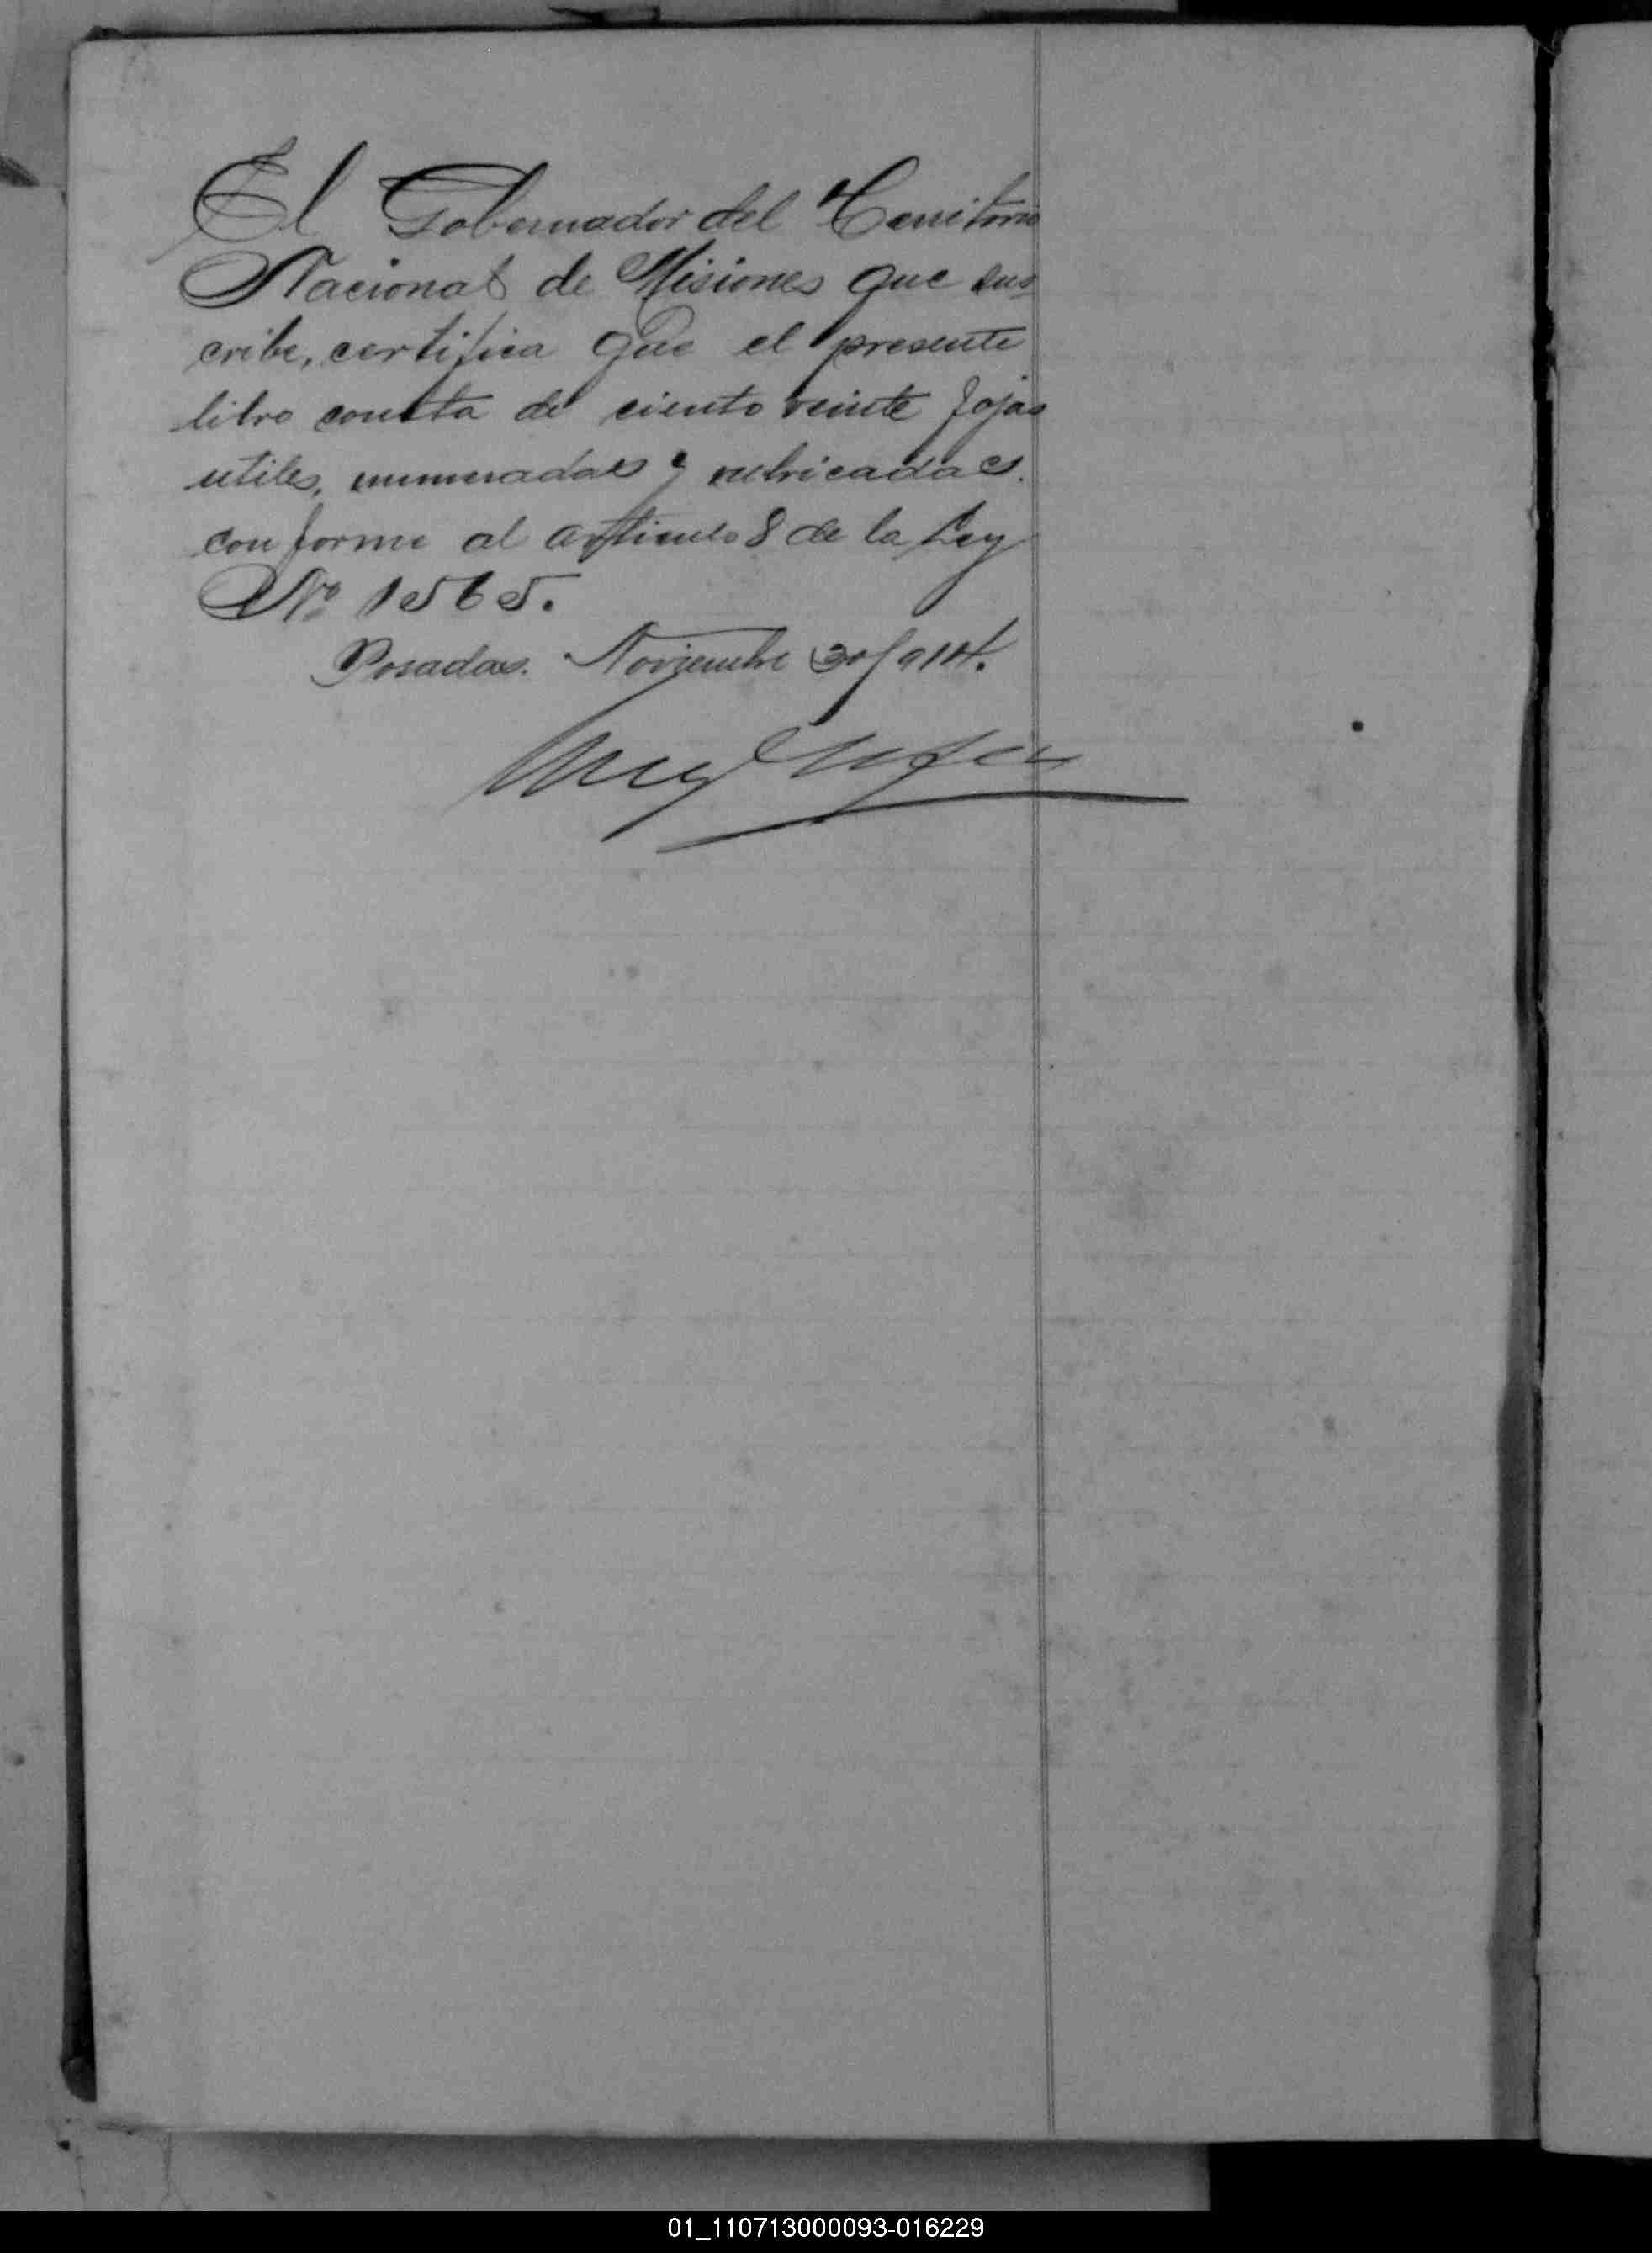 El Gobernador del Territorio
Nacional de Misiones que sus
cribe, certifica que el presente
libro consta de ciento veinte fojas
utiles, numeradas y rubricadas.
conforme al articulo 8 de la Ley
Nº 1565.
Posadas. Noviembre 30/914.
01_110713000093-016229